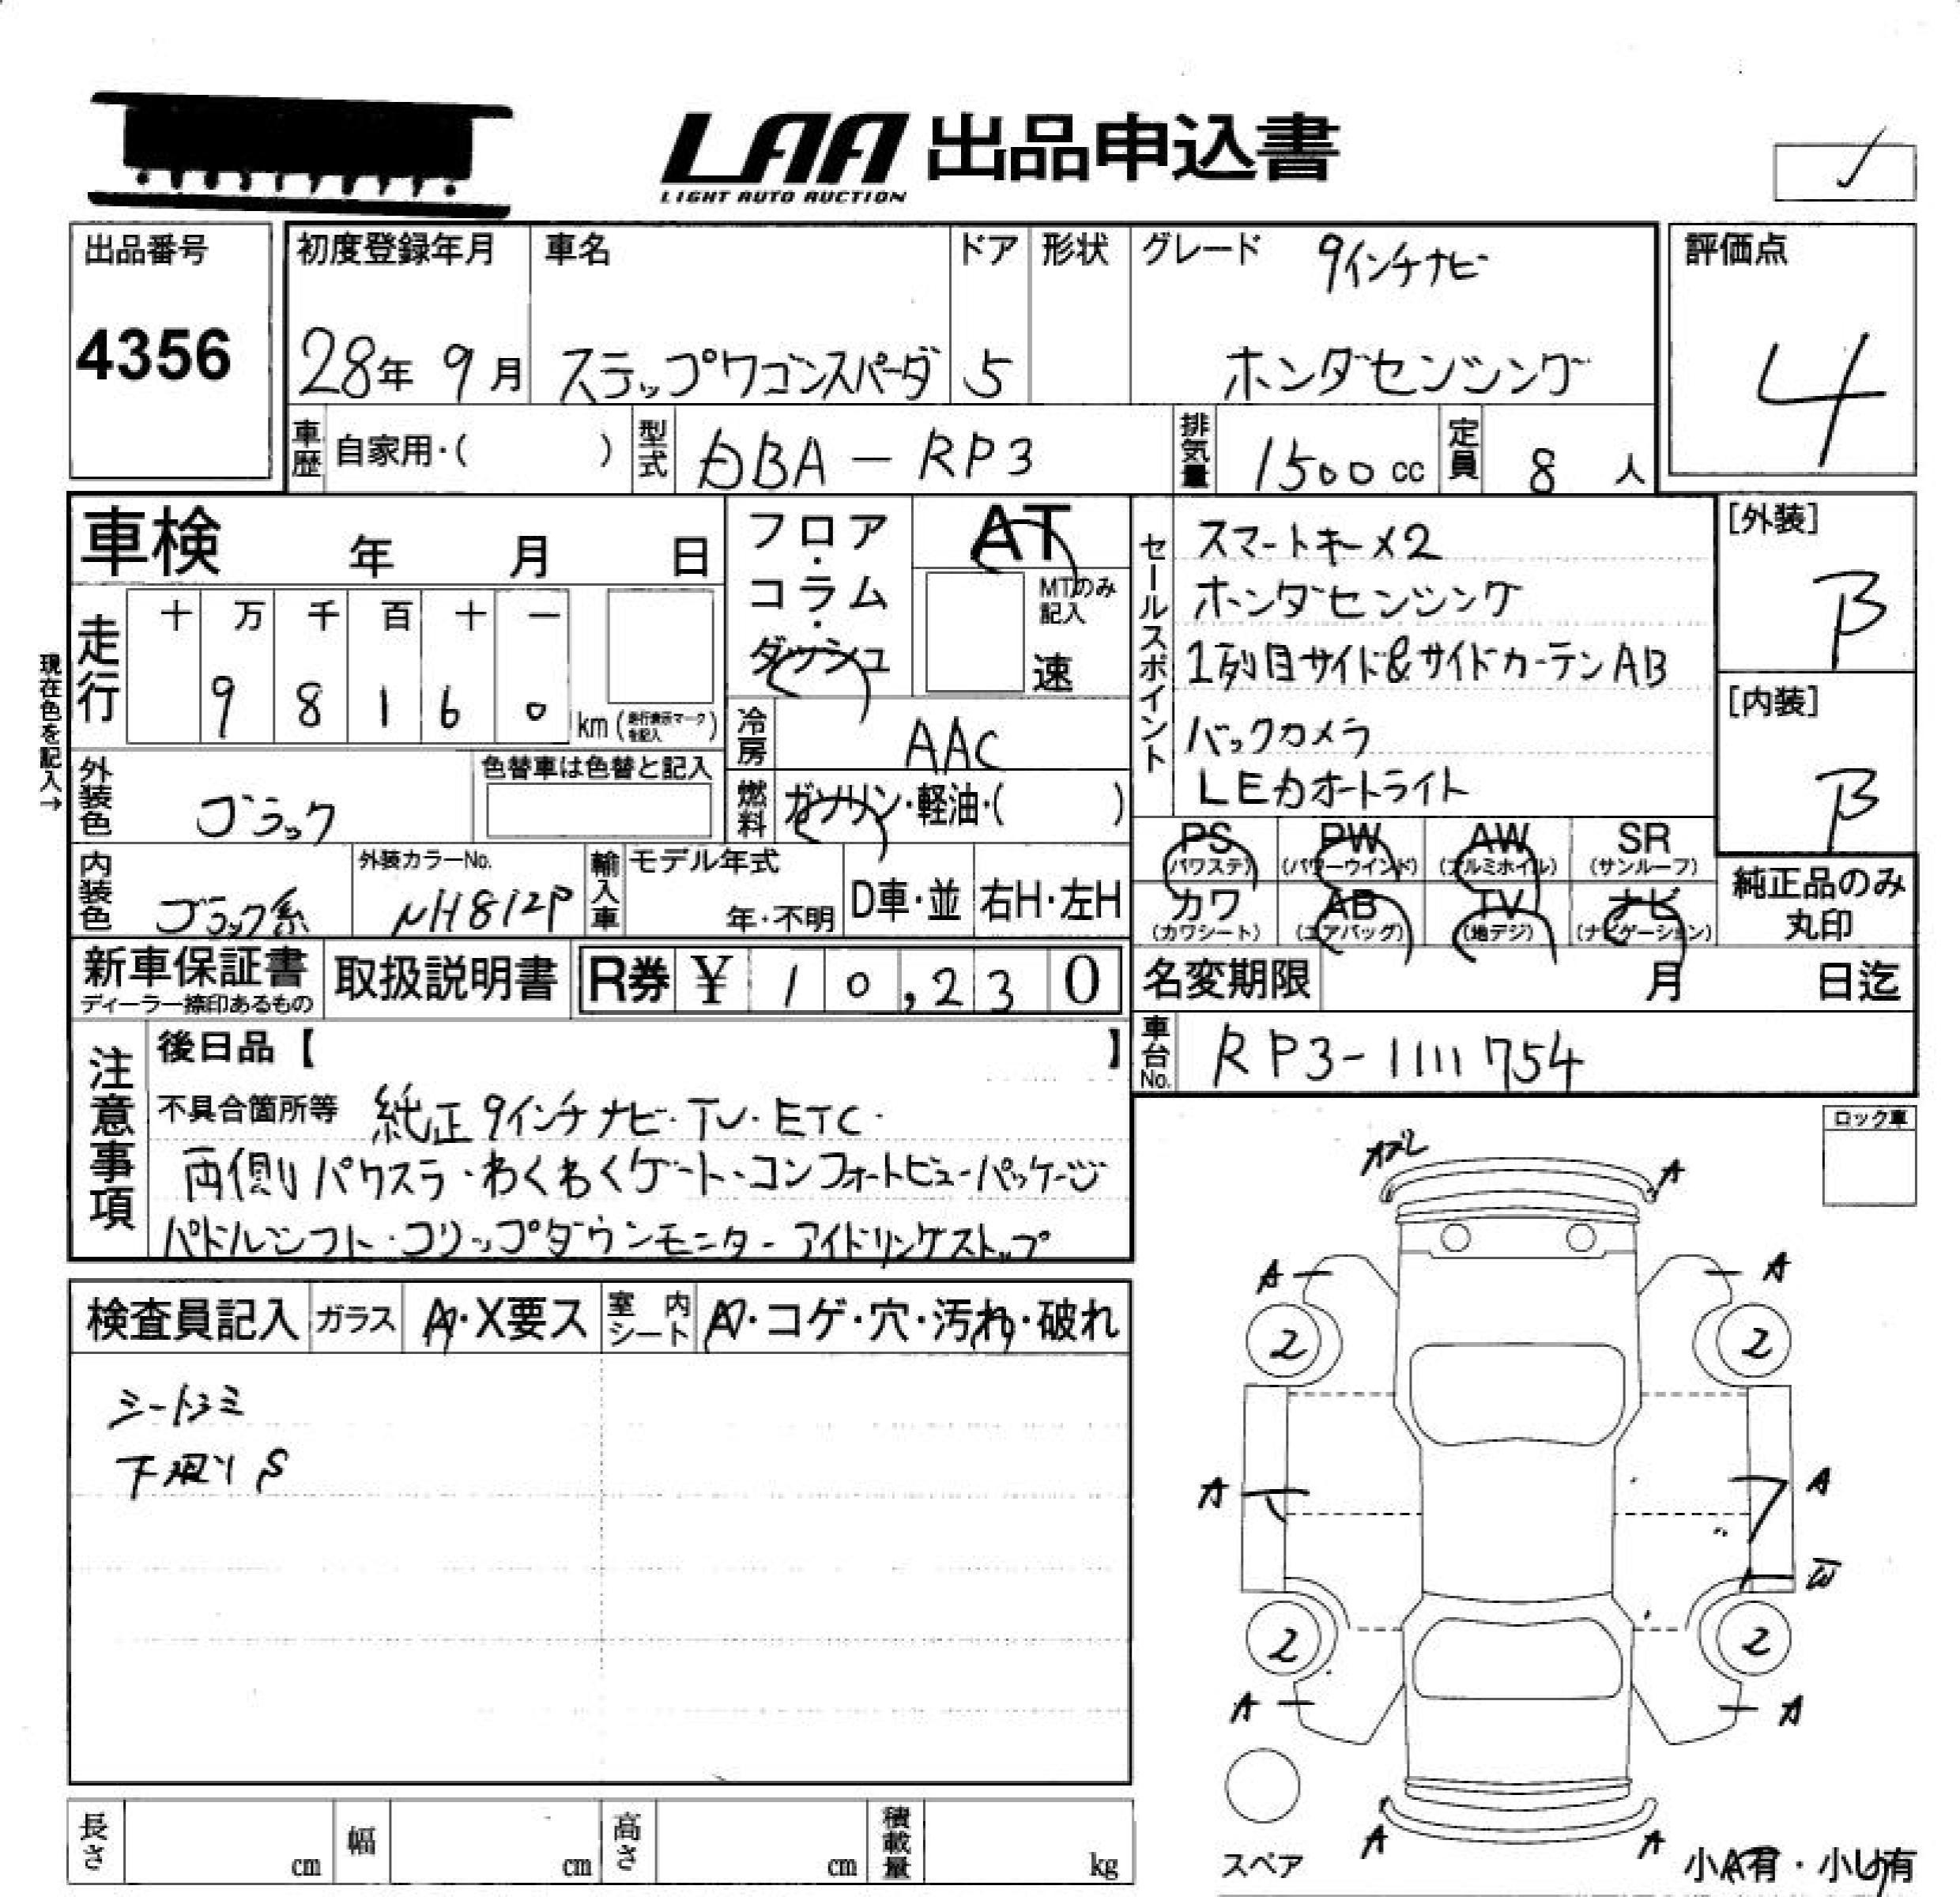 LAA 出品申込書
LIGHT AUTO AUCTION
出品番号
4356
初度登録年月
28年 9月
車名
ステップワゴンスパーダ
ドア
5
形状
グレード 9インチナビ
ホンダセンシング
評価点
4
車歴 自家用・( )
型式 DBA-RP3
排気量 1500cc
定員 8人
車検 年 月 日
フロア・コラム・ダッシュ
AT
MTのみ記入
速
セールスポイント
スマートキー×2
ホンダセンシング
1列目サイド&サイドカーテンAB
バックカメラ
LEDオートライト
[外装]
B
[内装]
B
現在色を記入→
走行 十 万 千 百 十 一
9 8 1 6 0 km (走行表示マークを記入)
冷房 AAC
燃料 ガソリン・軽油・( )
外装色 ブラック
色替車は色替と記入
内装色 ブラック系
外装カラーNo.
NH812P
輸入車 モデル年式
年・不明
D車・並
右H・左H
PS (パワステ)
PW (パワーウインド)
AW (アルミホイル)
SR (サンルーフ)
カワ (カワシート)
AB (エアバッグ)
TV (地デジ)
ナビ (ナビゲーション)
純正品のみ丸印
新車保証書
ディーラー捺印あるもの
取扱説明書
R券 ¥ 10,230
名変期限 月 日迄
車台No. RP3-1111754
注意事項
後日品【 】
不具合箇所等 純正9インチナビ・TV・ETC・
両側パワスラ・わくわくゲート・コンフォートビューパッケージ
パドルシフト・フリップダウンモニター アイドリングストップ
ロック車
検査員記入
ガラス A・X要ス
室内シート A・コゲ・穴・汚れ・破れ
シートシミ
下廻りS
A
A
A
2
2
A
A
W
2
2
A
A
A
A
スペア
小A有・小U有
長さ cm
幅 cm
高さ cm
積載量 kg